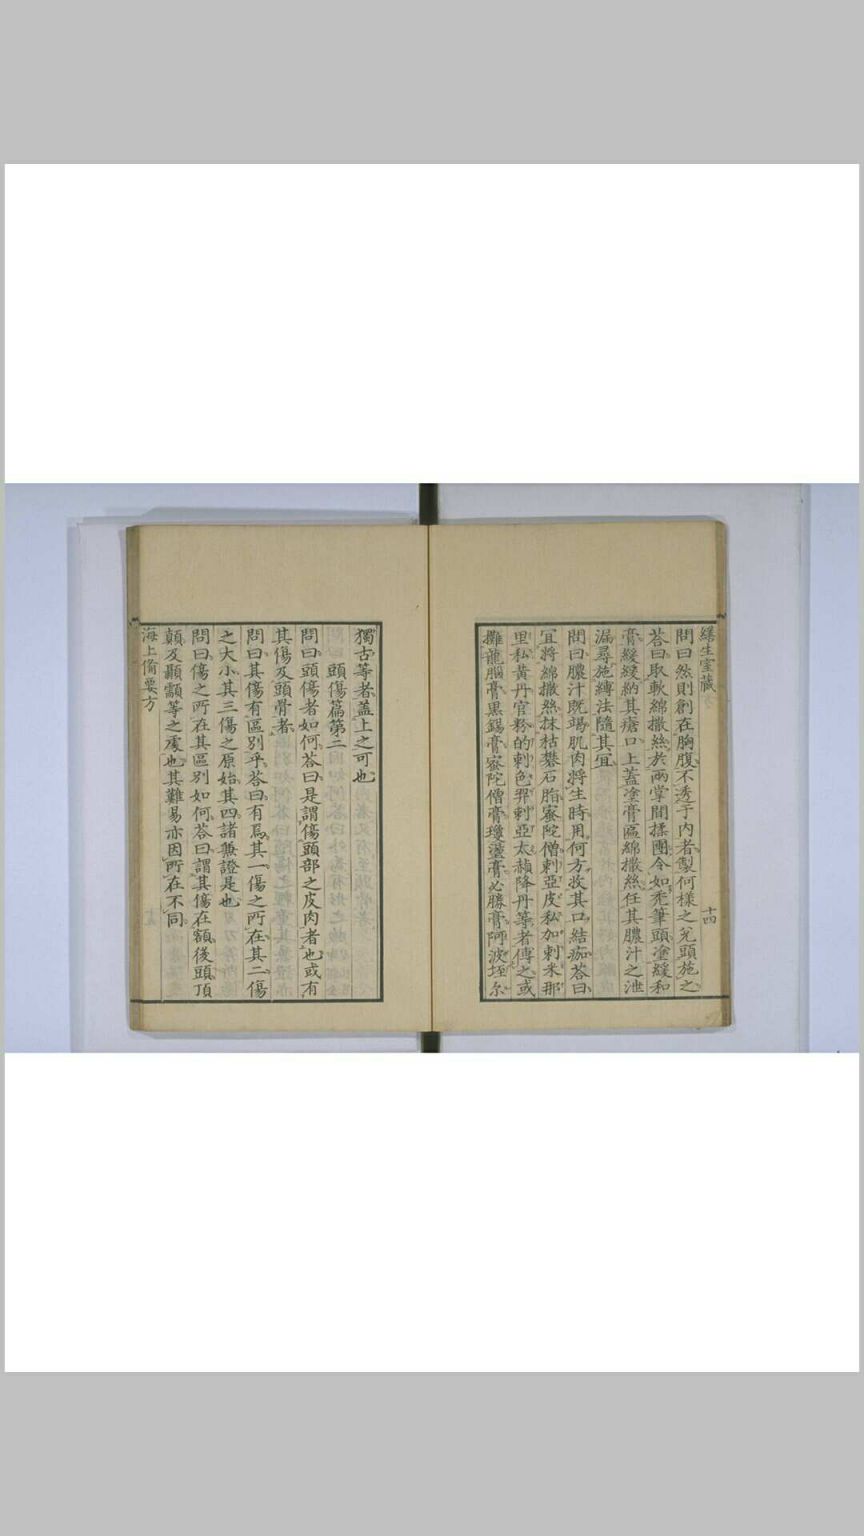 繕生室藏
十四
問曰然則創在胸腹不透于內者製何樣之兌頭施之
荅曰取軟綿撒絲於兩掌間揉團令如禿筆頭塗緩和
膏緩緩納其瘡口上蓋塗膏區綿撒絲任其膿汁之泄
漏尋施縛法隨其冝
問曰膿汁既竭肌肉將生時用何方收其口結痂荅曰
冝將綿撒絲抹枯礬石脂蜜陀僧剌亞皮私加剌米那
里私黃丹官粉的剌色羿剌亞太赬降丹等者傅之或
攤龍腦膏黑錫膏蜜陀僧膏瓊盪膏必勝膏阿波垤尓
獨古等者蓋上之可也
頭傷篇第二
問曰頭傷者如何荅曰是謂傷頭部之皮肉者也或有
其傷及頭骨者
問曰其傷有區別乎荅曰有焉其一傷之所在其二傷
之大小其三傷之原始其四諸兼證是也
問曰傷之所在其區別如何荅曰謂其傷在額後頭頂
顛及顳顬等之處也其難易亦因所在不同
海上備要方